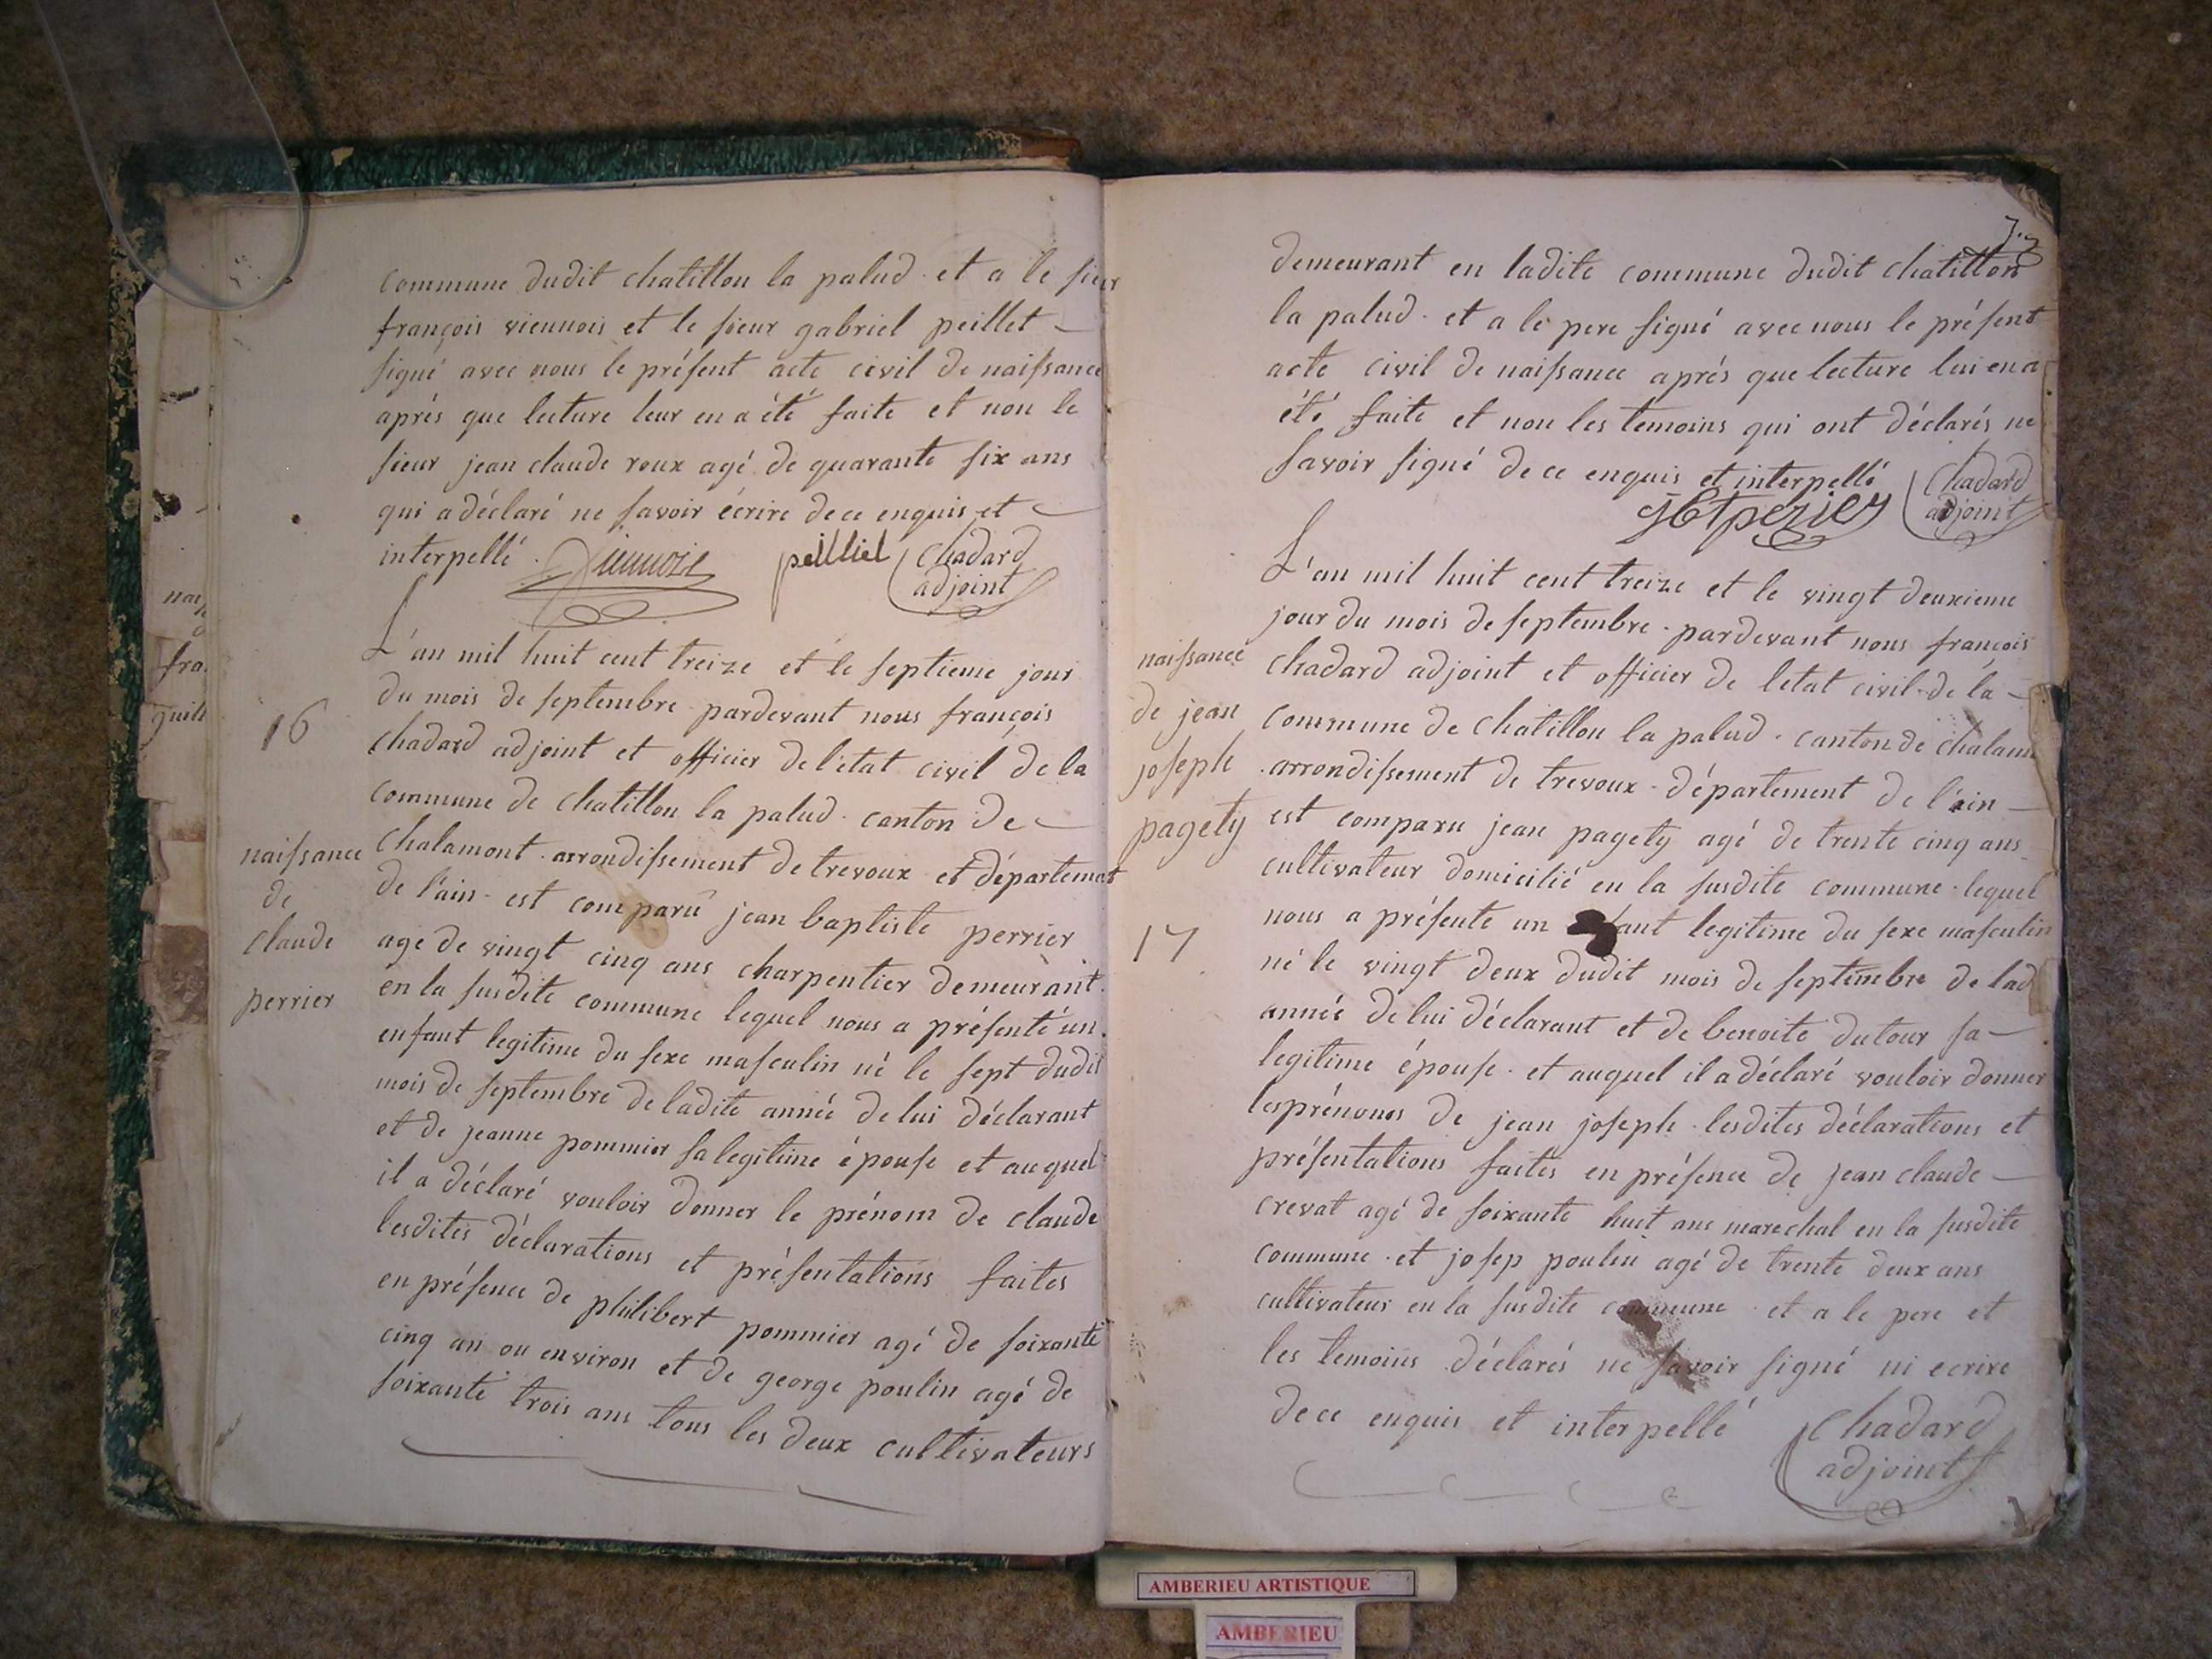 commune dudit chatillon la palud. et a le sieur
françois viennois et le sieur gabriel peillet
signé avec nous le présent acte civil de naissance
après que lecture leur en a été faite et non le
sieur jean claude roux agé de quarante six ans
qui a déclaré ne savoir écrire de ce enquis et
interpellé.
Viennois peilliet Chadard
adjoint
L'an mil huit cent treize et le septieme jour
du mois de septembre. pardevant nous françois
chadard adjoint et officier de l'etat civil de la
commune de chatillon la palud. canton de
chalamont. arrondissement de trevoux et départemat
de l'ain. est comparu jean baptiste perrier
age de vingt cinq ans charpentier demeurant
en la susdite commune lequel nous a présenté un
enfant legitime du sexe masculin né le sept dudit
mois de septembre de ladite année de lui déclarant
et de jeanne pommier sa legitime épouse et auquel
il a déclaré vouloir donner le prénom de claude
lesdites déclarations et présentations faites
en présence de philibert pommier agé de soixante
cinq an ou environ et de george poulin agé de
soixante trois ans tous les deux cultivateurs
16
naissance
de
claude
perrier
demeurant en ladite commune dudit chatillon
la palud. et a le pere signé avec nous le présent
acte civil de naissance après que lecture lui en a
été faite et non les temoins qui ont déclarés ne
savoir signé de ce enquis et interpellé
Chadard
adjoint
L'an mil huit cent treize et le vingt deuxieme
jour du mois de septembre. pardevant nous françois
chadard adjoint et officier de letat civil de la
commune de chatillon la palud. canton de chalam
arrondissement de trevoux. département de l'ain
est comparu jean pagety agé de trente cinq ans
cultivateur domicilié en la susdite commune. lequel
nous a présenté un fant legitime du sexe masculin
né le vingt deux dudit mois de septembre de lad
année de lui déclarant et de benoite dutour sa
legitime épouse. et auquel il a déclaré vouloir donner
les prénoms de jean joseph. lesdites déclarations et
présentations faites en présence de jean claude
crevat agé de soixante huit ans marechal en la susdite
commune. et josep poulin agé de trente deux ans
cultivateur en la susdite commune. et a le pere et
les temoins déclarés ne savoir signé ni ecrire
de ce enquis et interpellé
Chadard
adjoint
naissance
de jean
joseph
pagety
17
AMBERIEU ARTISTIQUE
AMBERIEU